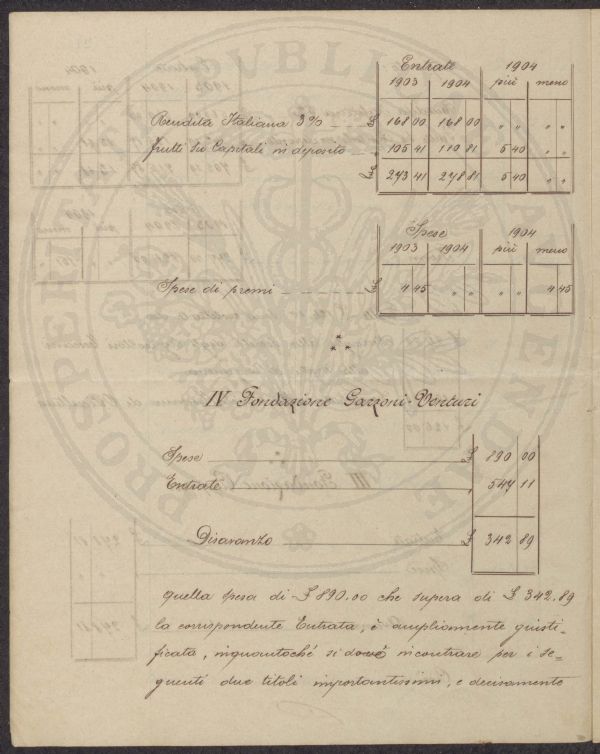 Entrate 1904
1903 1904 più meno
Rendita Italiana 3% £ 168 00 168 00 " " " "
frutti su Capitali in deposito 105 41 110 81 5 40 " "
£ 273 41 278 81 5 40 " "
Spese 1904
1903 1904 più meno
Spese di premi £ 4 45 " " " " 4 45
IV Fondazione Garzoni-Venturi
Spese £ 890 00
Entrate " 547 11
Disavanzo £ 342 89
quella spesa di £ 890.00 che supera di £ 342.89
la corrispondente Entrata, è ampliamente giusti-
ficata, inquantoché si dové incontrare per i se=
guenti due titoli importantissimi, e decisamente
PROSPERO PUBLIC